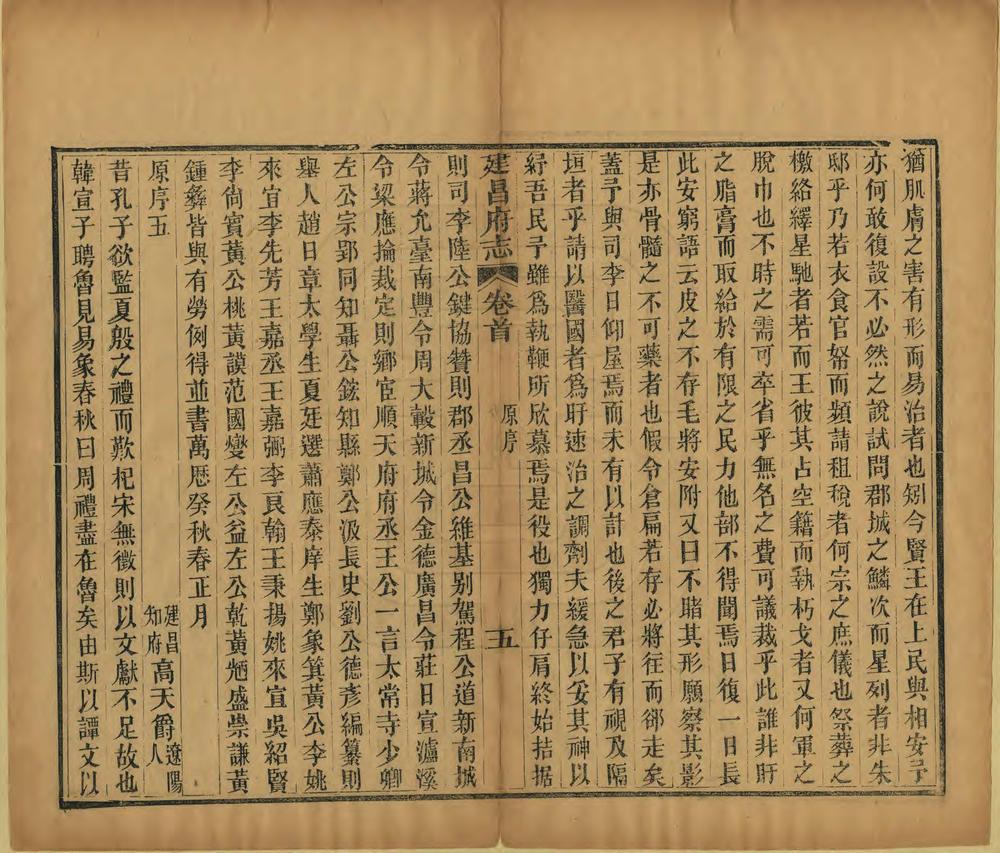 猶肌膚之害有形而易治者也矧今賢王在上民與相安予
亦何敢復設不必然之說試問郡城之鱗次而星列者非朱
邸乎乃若衣食官帑而頻請租稅者何宗之庶儀也祭葬之
檄絡繹星馳者若而王彼其占空籍而執朽戈者又何軍之
脫巾也不時之需可卒省乎無名之費可議裁乎此誰非盱
之脂膏而取給於有限之民力他部不得聞焉日復一日長
此安窮語云皮之不存毛將安附又曰不睹其形願察其影
是亦骨髓之不可藥者也假令倉扁若存必將往而郤走矣
蓋予與司李日仰屋焉而未有以計也後之君子有覗及隔
垣者乎請以醫國者爲盱速治之調劑夫緩急以安其神以
紓吾民予雖爲執鞭所欣慕焉是役也獨力仔肩終始拮据
建昌府志 卷首 原序 五
則司李陸公鍵協贊則郡丞昌公維基别駕程公道新南城
令蔣允臺南豐令周大轂新城令金德廣昌令莊日宣瀘溪
令梁應掄裁定則鄉宦順天府府丞王公一言太常寺少卿
左公宗郢同知聶公鋐知縣鄭公汲長史劉公德彥編纂則
舉人趙日章太學生夏廷選蕭應泰庠生鄭象箕黃公李姚
來宜李先芳王嘉丞王嘉弼李良翰王秉揚姚來宣吳紹賢
李尙賓黃公桃黃謨范國燮左公益左公乾黃兡盛崇謙黃
鍾彝皆與有勞例得並書萬厯癸秋春正月
原序五 建昌知府高天爵遼陽人
昔孔子欲監夏殷之禮而歎杞宋無徵則以文獻不足故也
韓宣子聘魯見易象春秋曰周禮盡在魯矣由斯以譚文以